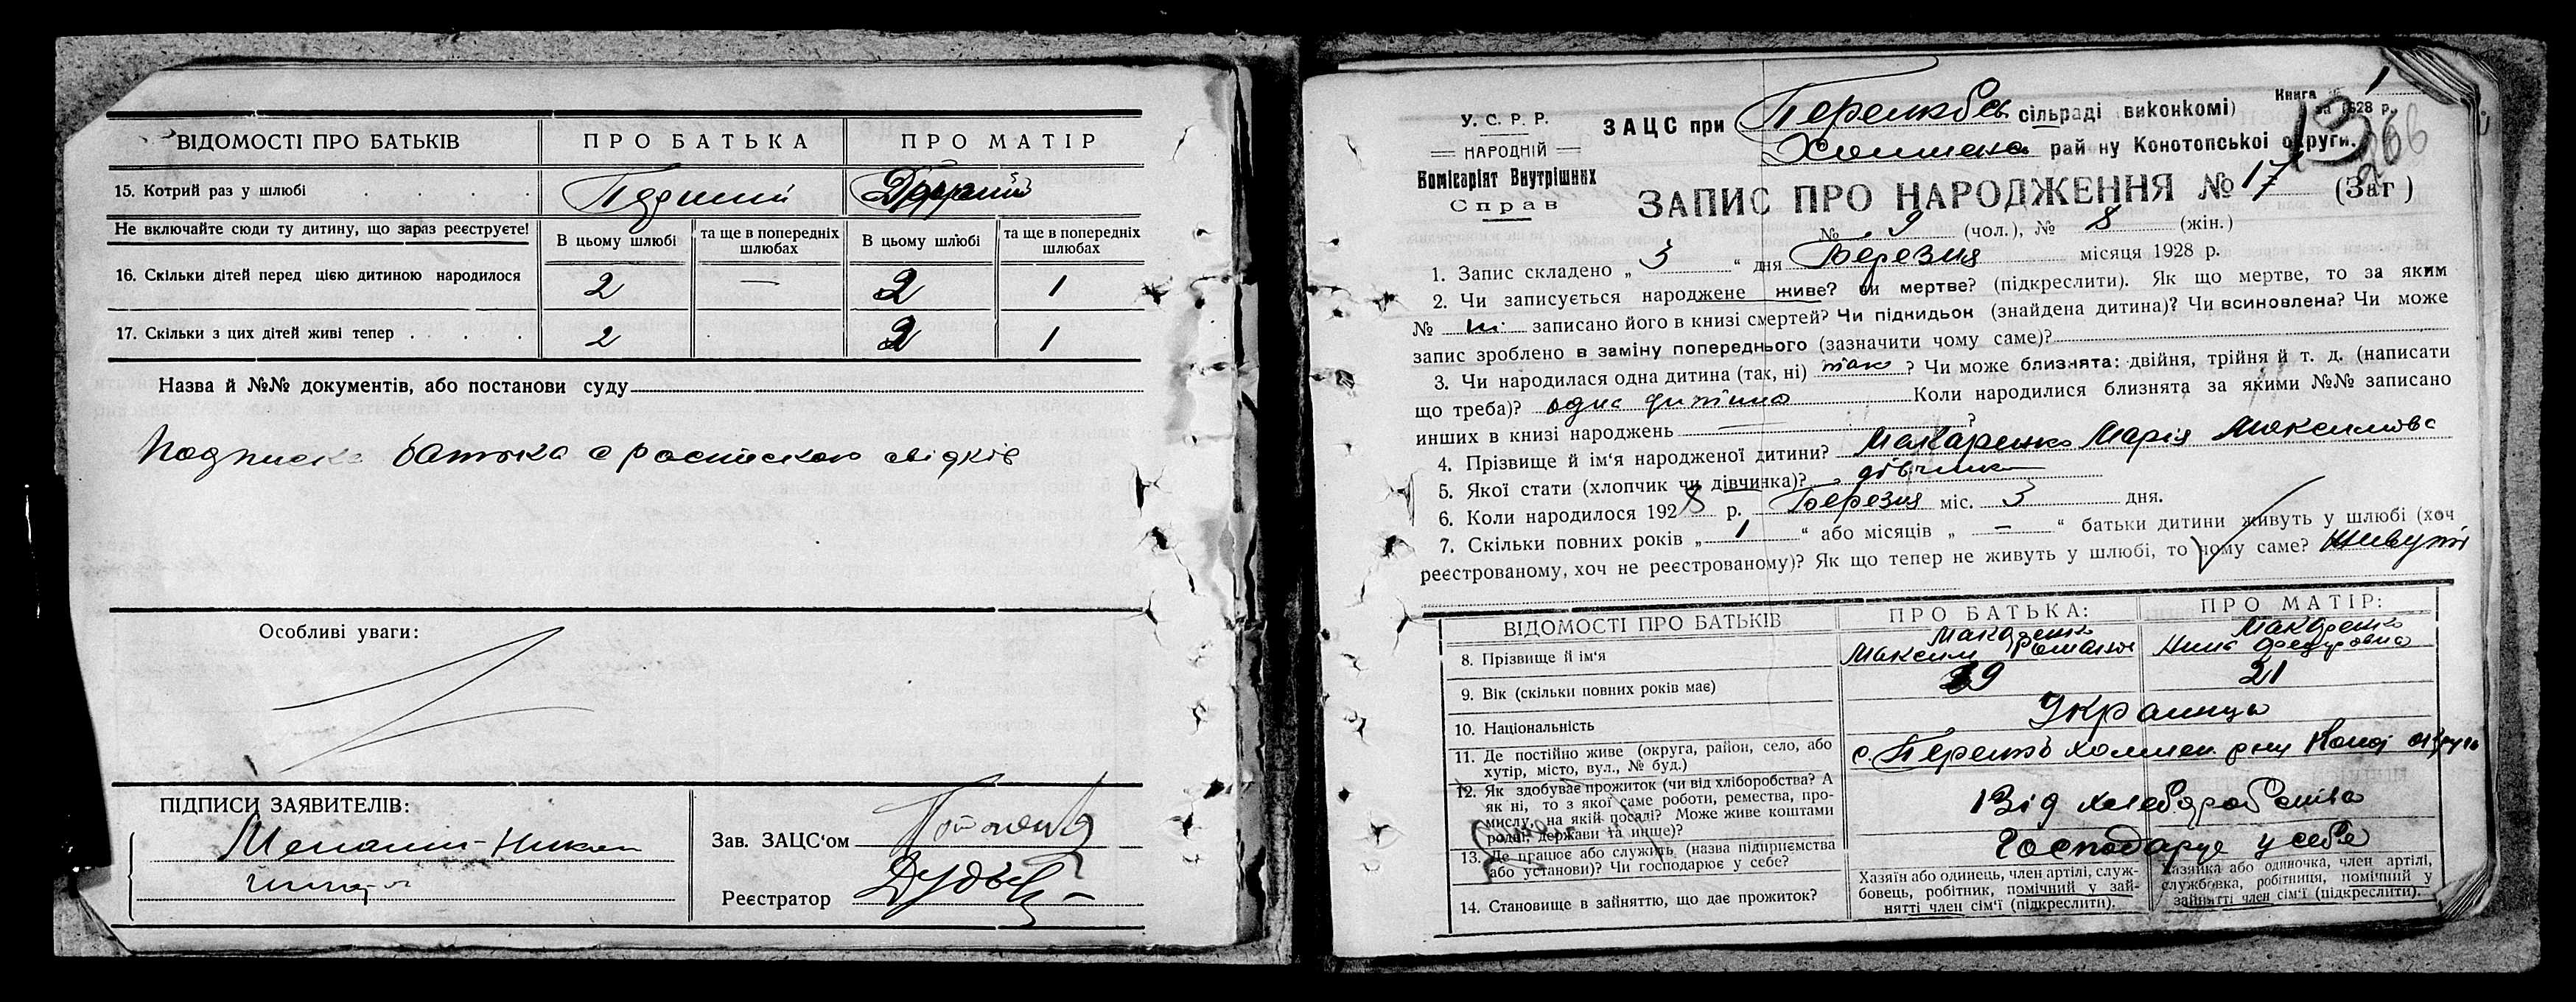 ВІДОМОСТІ ПРО БАТЬКІВ
ПРО БАТЬКА
ПРО МАТІР
15. Котрий раз у шлюбі . . . .
Другий
Не включайте сюди ту дитину, що зараз реєструєте!
В цьому шлюбі
та ще в попередніх шлюбах
В цьому шлюбі
та ще в попередніх шлюбах
16. Скільки дітей перед цією дитиною народилося
2 — 2 1
17. Скільки з цих дітей живі тепер . . .
2 2 1
Назва й №№ документів, або постанови суду
Подписка батька с роспіскою свідків
Особливі уваги:
ПІДПИСИ ЗАЯВИТЕЛІВ:
Зав. ЗАЦС'ом
Реєстратор
У. С. Р. Р.
НАРОДНІЙ
Комісаріят Внутрішних
Справ
Книга
за 1928 р.
1
13
266
ЗАЦС при сільраді виконкомі)
рай ну Конотопської округи.
ЗАПИС ПРО НАРОДЖЕННЯ № 17 (Заг)
№ 9 (чол.), № 8 (жін.)
1. Запис складено „ 3 “ дня Березня місяця 1928 р.
2. Чи записується народжене живе? чи мертве? (підкреслити). Як що мертве, то за яким
№ записано його в книзі смертей? Чи підкидьок (знайдена дитина)? Чи всиновлена? Чи може
запис зроблено в заміну попереднього (зазначити чому саме)?
3. Чи народилася одна дитина (так, ні) так ? Чи може близнята: двійня, трійня й т. д. (написати
що треба)? одна дитина Коли народилися близнята за якими №№ записано
инших в книзі народжень — ?
4. Прізвище й ім'я народженої дитини? Макаренко Марія Максимовс
5. Якої стати (хлопчик чи дівчинка)? дівчинка
6. Коли народилося 1928 р. Березня міс. 3 дня.
7. Скільки повних років „ 1 “ або місяців „ — “ батьки дитини живуть у шлюбі (хоч
реєстрованому, хоч не реєстрованому)? Як що тепер не живуть у шлюбі, то чому саме? Живуть
ВІДОМОСТІ ПРО БАТЬКІВ
ПРО БАТЬКА:
ПРО МАТІР:
8. Прізвище й ім'я
Макаренко
Максим
Макаренко
Нина Федоровна
9. Вік (скільки повних років має)
29
21
10. Національність
Украинцы
11. Де постійно живе (округа, район, село, або
хутір, місто, вул., № буд.)
12. Як здобуває прожиток (чи від хліборобства? А
як ні, то з якої саме роботи, ремества, про-
мислу, на якій посаді? Може живе коштами
родні, держави та инше)?
Від
13. Де працює або служить (назва підприємства
або установи)? Чи господарює у себе?
Господарує у себе
14. Становище в зайняттю, що дає прожиток?
Хазяїн або одинець, член артілі, служ-
бовець, робітник, помічний у зай-
нятті член сім'ї (підкреслити).
Хазяйка або одиночка, член артілі,
службовка, робітниця, помічний у
зайнятті член сім'ї (підкреслити).